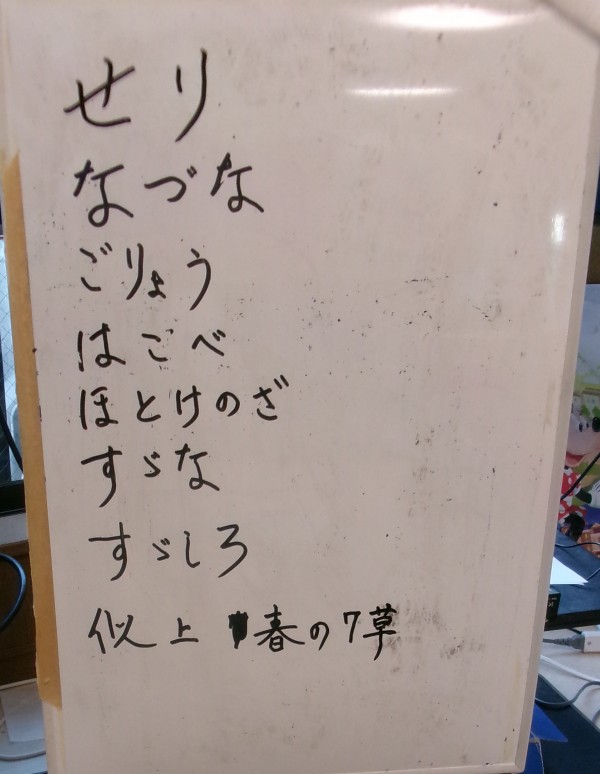 せり
なづな
ごりょう
はこべ
ほとけのざ
すゞな
すゞしろ
似上 春の7草